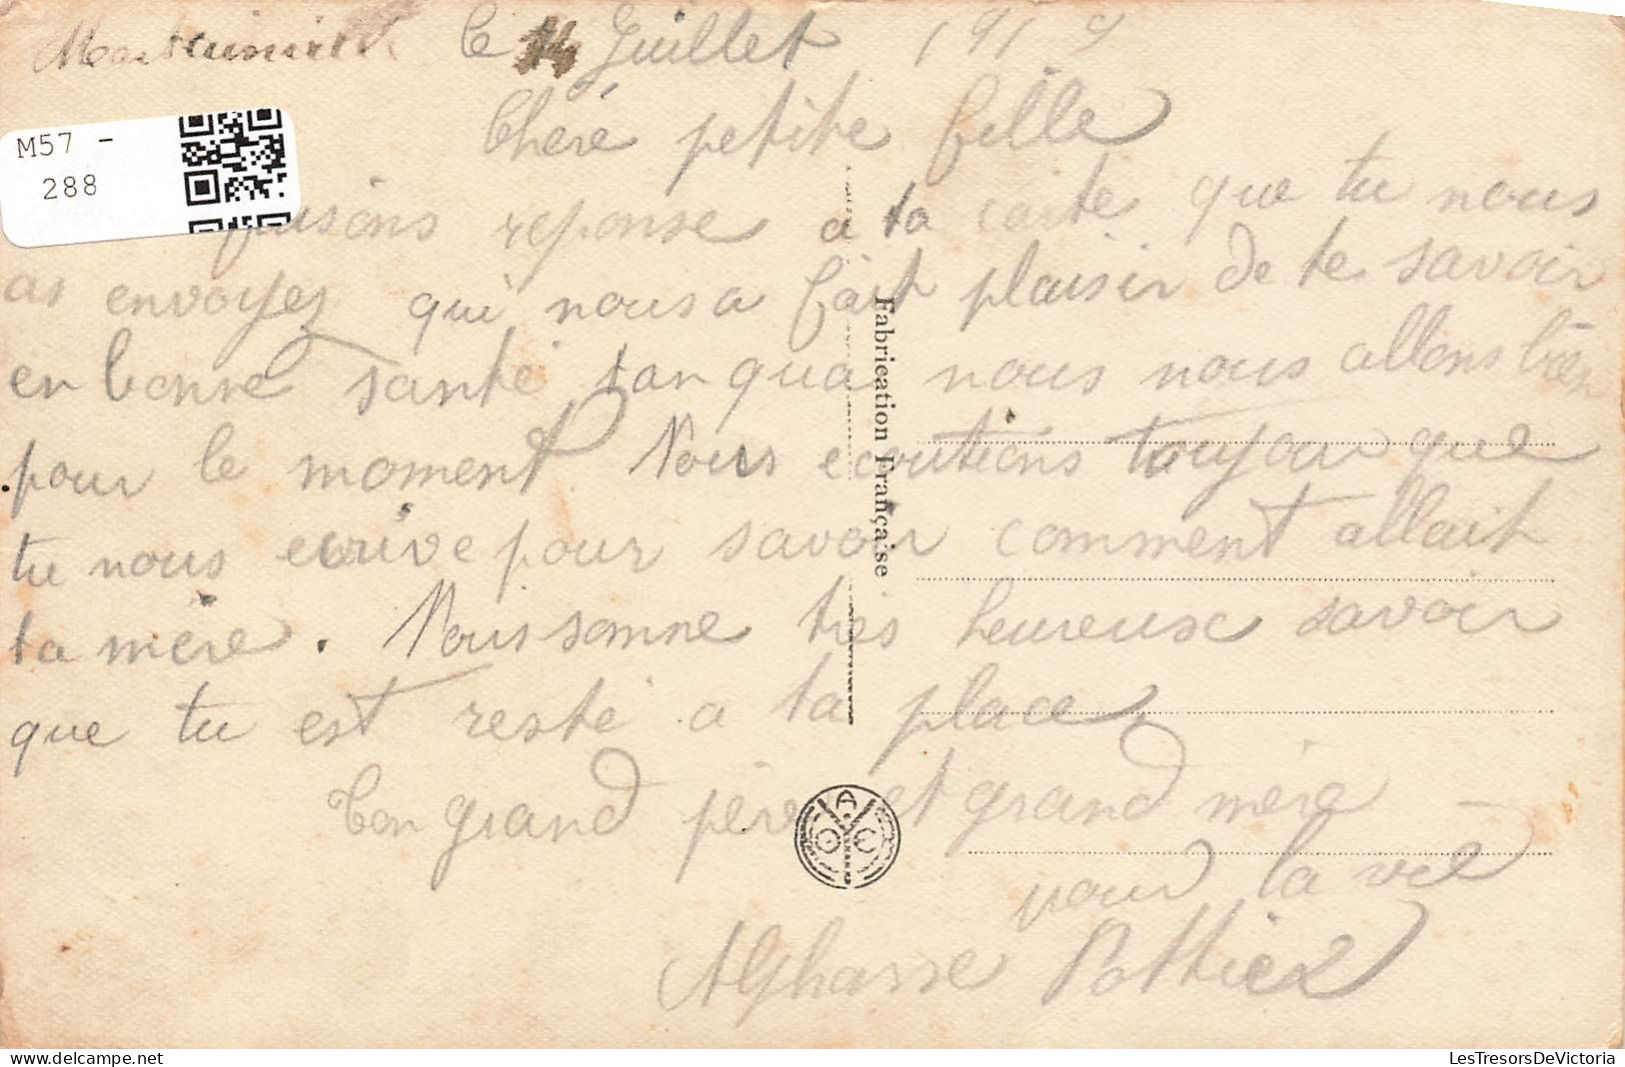 Le 14 Juillet 1919
Chère petite fille
M57 -
288
faisons reponse a ta carte que tu nous
as envoyez qui nous a fait plaisir de te savoir
en bonne santé tan qua nous nous allons bien
pour le moment Nous ecoutions toujour que
tu nous ecrive pour savoir comment allait
ta mère. Nous somne très heureuse savoir
que tu est resté a ta place
Ton grand père et grand mère
pour la vie
Alphonse Pottier
Fabrication Française
A
O E
LesTresorsDeVictoria
www.delcampe.net